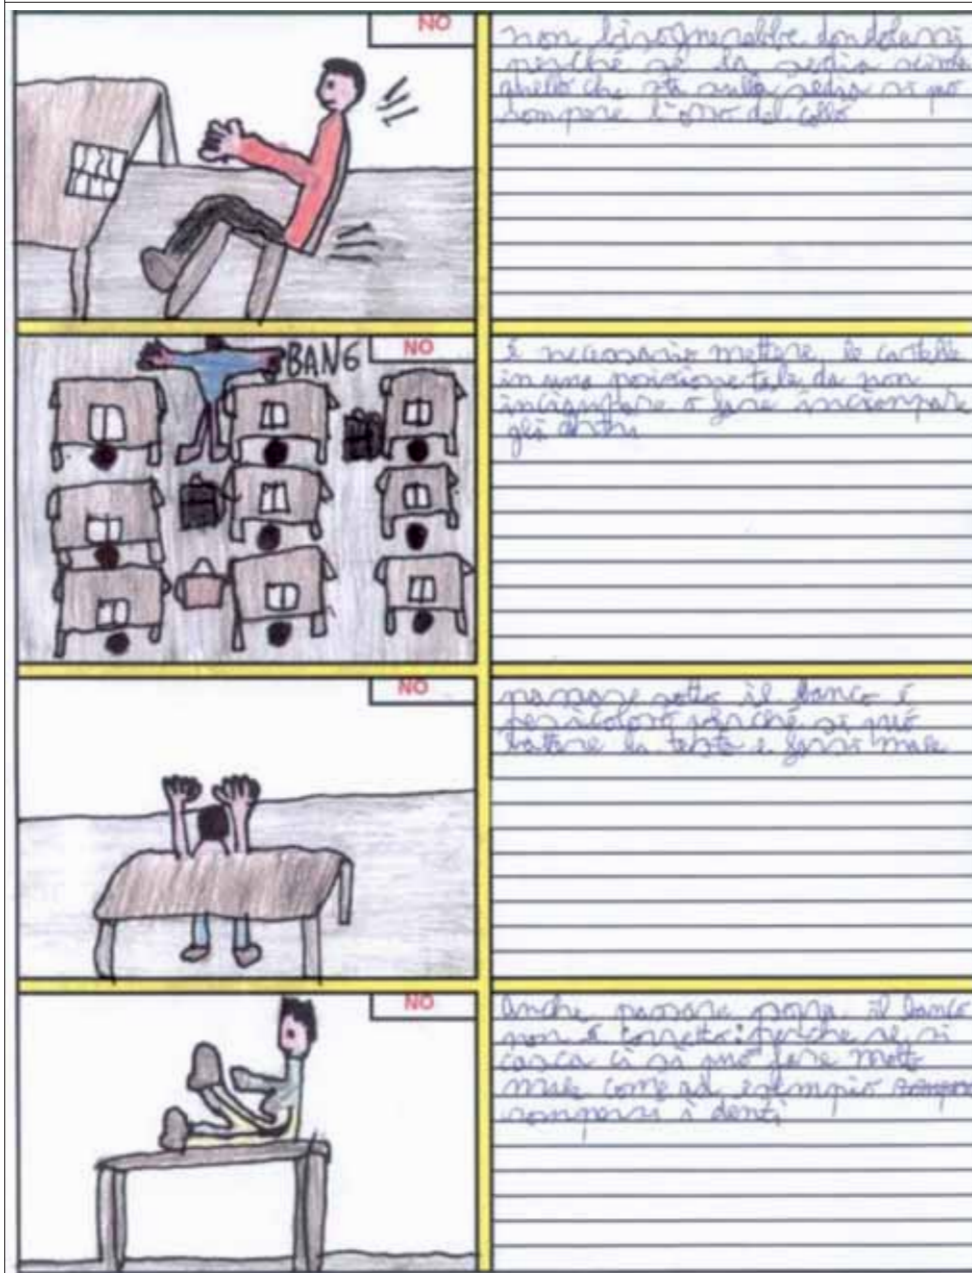 NO
non bisognerebbe dondolarsi
perché se la sedia scivola
quello che sta sulla sedia si pò
rompere l'osso del collo
BANG
NO
È necessario mettere le cartelle
in una posizione tale da non
inciampare o fare inciampare
gli altri
NO
passare sotto il banco è
pericoloso perché si può
battere la testa e farsi male
NO
Anche passare sopra il banco
non è corretto: perché se si
casca ci si può fare molto
male come ad esempio
rompersi i denti